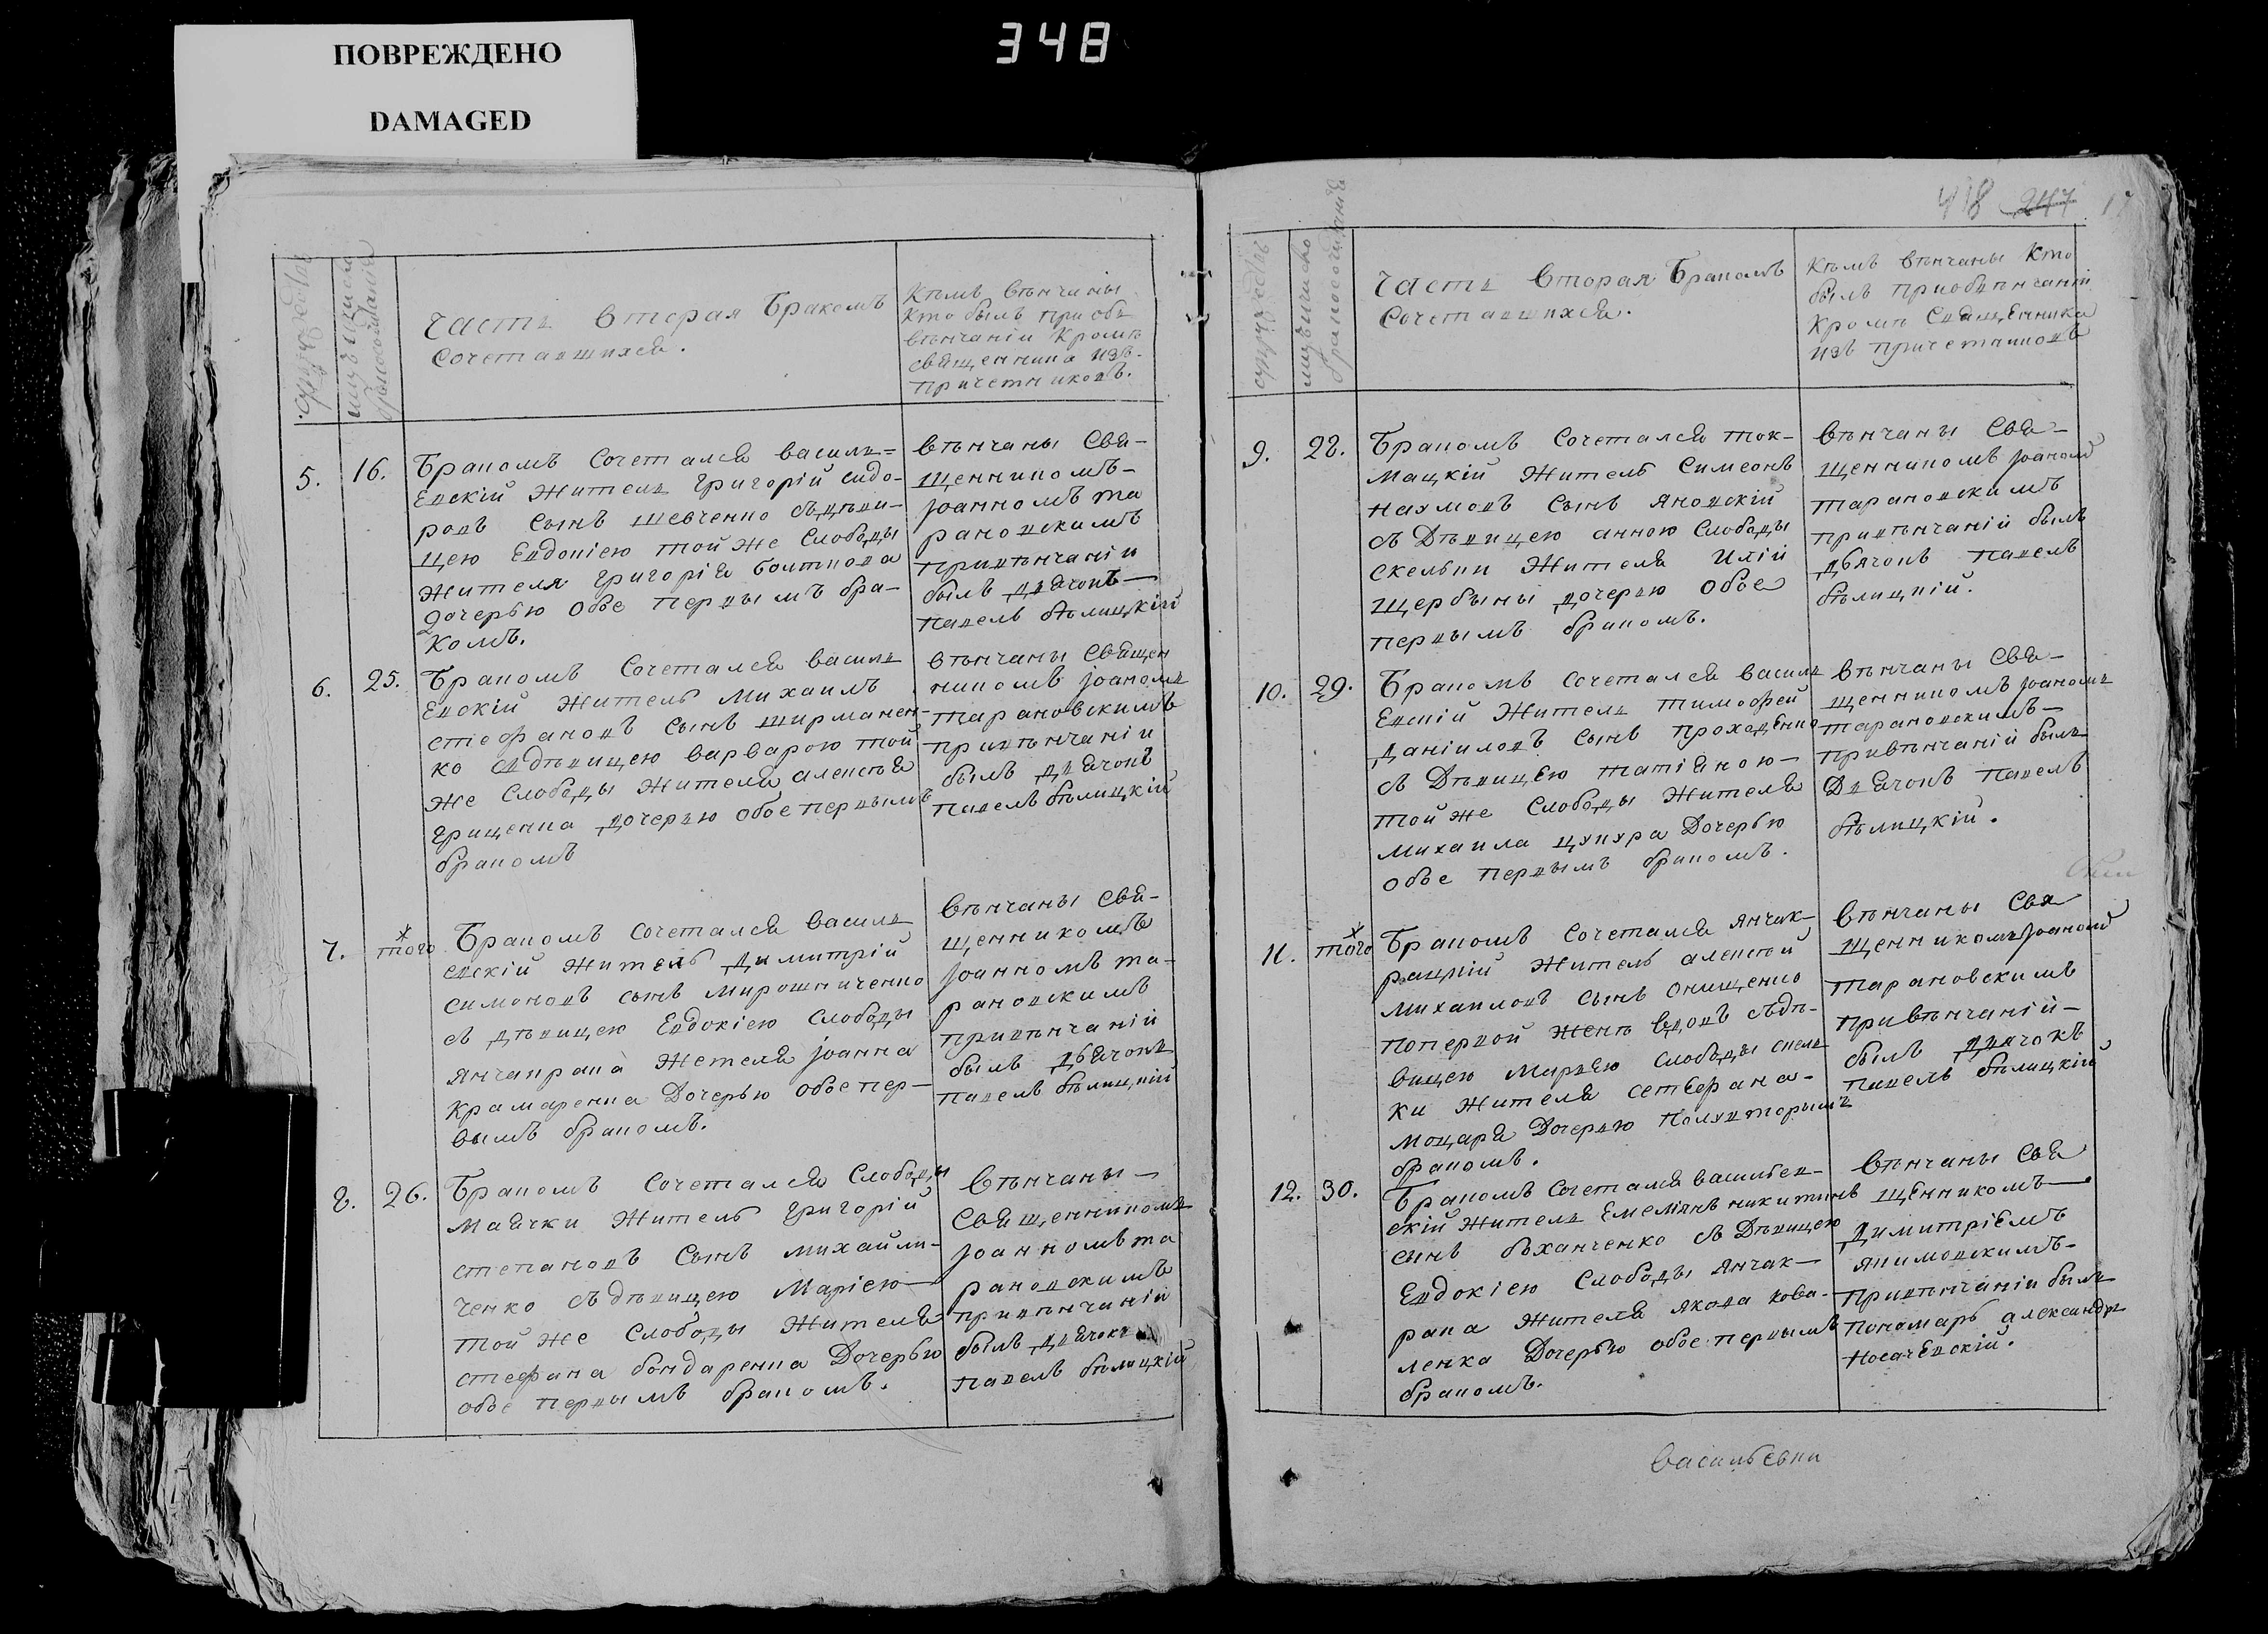 ПОВРЕЖДЕНО
DAMAGED
348
418 247
часть вторая Бракомъ
сочетавшихся.
Кѣмъ вѣнчаны
кто былъ при объ
вѣнчаніи кромѣ
священника изъ-
причетниковъ.
5.
16.
Бракомъ сочетался василь=
евскій житель григорій сидо-
ровъ сынъ шевченко съдѣви-
цею Евдокіею той же слободы
жителя григорія болтнова
дочерью обое первымъ бра-
комъ.
вѣнчаны свя-
щенникомъ-
Іоанномъ та
рановскимъ
привѣнчаніи
былъ дьячокъ—
павелъ бѣлицкій
6.
25.
Бракомъ сочетался василь
евскій житель михаилъ
стефановъ сынъ ширманен-
ко съдѣвицею варварою той
же слободы жителя алексѣя
грищенка дочерью обое первымъ
бракомъ
вѣнчаны священ
никомъ Іоаномъ
тарановскимъ
привѣнчаніи
былъ дьячокъ
павелъ бѣлицкій
7.
того
Бракомъ сочетался василь
евскій житель димитрій
симоновъ сынъ мирошниченко
съ дѣвицею Евдокіею слободы
янчакрака жетеля Іоанна
крамаренка дочерью обое пер-
вымъ бракомъ.
вѣнчаны свя-
щенникомъ
Іоанномъ та-
рановскимъ
привѣнчаній
былъ дьячокъ
павелъ бѣлицкій
8.
26.
Бракомъ сочетался слободы
маячки житель григорій
степановъ сынъ михайли-
ченко съдѣвицею маріею—
той же слободы жителя
стефана бондаренка дочерью
обое первымъ бракомъ.
вѣнчаны—
священникомъ
Іоанномъ та
рановскимъ
привѣнчаніи
былъ дьячокъ
павелъ бѣлицкій
часть вторая Бракомъ
сочетавшихся.
Кѣмъ вѣнчаны кто
былъ приобвѣнчаніи
кромѣ священника
изъ причетниковъ
9.
28.
Бракомъ сочетался ток-
мацкій житель симеонъ
нахмовъ сынъ яновскій
съ дѣвицею анною слободы
скельки жителя иліи
щербыны дочерью обое
первымъ бракомъ.
вѣнчаны свя-
щенникомъ Іоаномъ
тарановскимъ
привѣнчаній былъ
дьячокъ павелъ
бѣлицкій.
10.
29.
Бракомъ сочетался василь
евскій житель тимофей
даніиловъ сынъ проходенко
съ дѣвицею татіяною—
той же слободы жителя
михаила цукура дочерью
обое первымъ бракомъ.
вѣнчаны свя-
щенникомъ Іоаномъ
тарановскимъ—
привѣнчаній былъ
дьячокъ павелъ
бѣлицкій.
11.
того
Бракомъ сочетался янчак-
рацкій житель алексѣй
михаиловъ сынъ онищенко
попервой женѣ вдовъ съдѣ-
вицею марѳею слободы скель
ки жителя стефана-
моцаря дочерью полуторымъ
бракомъ.
вѣнчаны свя
щенникомъ Іоаномъ
тарановскимъ
привѣнчаній—
былъ дьячокъ
павелъ бѣлицкій
12.
30.
Бракомъ сочетался васильев-
скій житель Емеліянъ никитинъ
сынъ буханченко съ дѣвицею
Евдокіею слободы янчак—
рака жителя якова кова-
ленка дочерью обое первымъ
бракомъ.
вѣнчаны свя
щенникомъ—
димитріемъ
якимовскимъ-
привѣнчаніи былъ
пономарь александръ
носачевскій.
васильевки